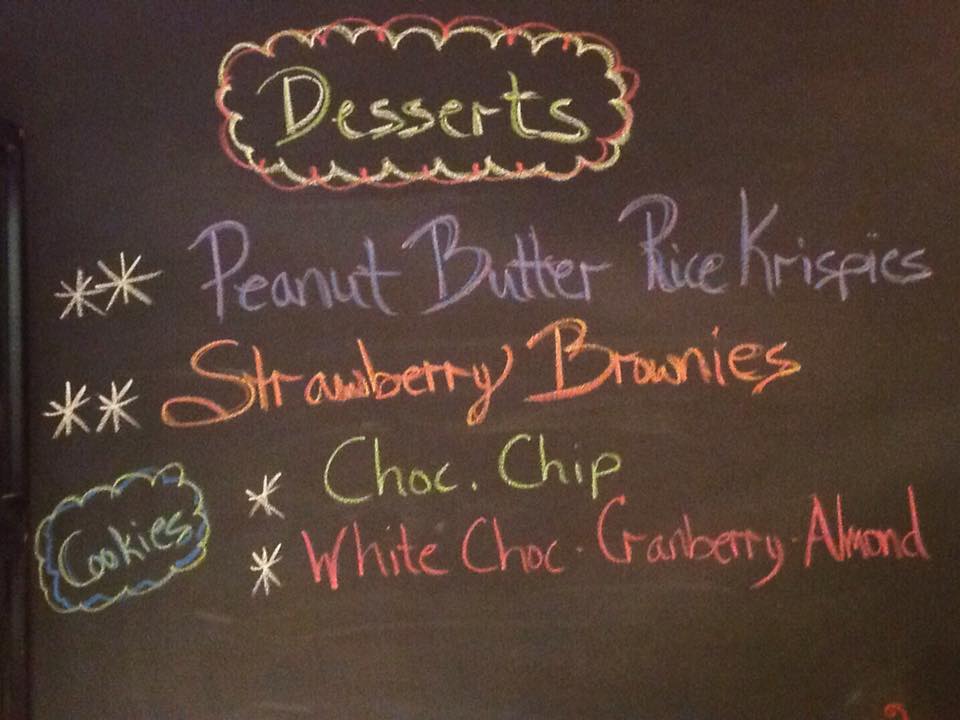 Desserts
** Peanut Butter Rice Krispies
** Strawberry Brownies
Cookies
* Choc. Chip
* White Choc. Cranberry. Almond